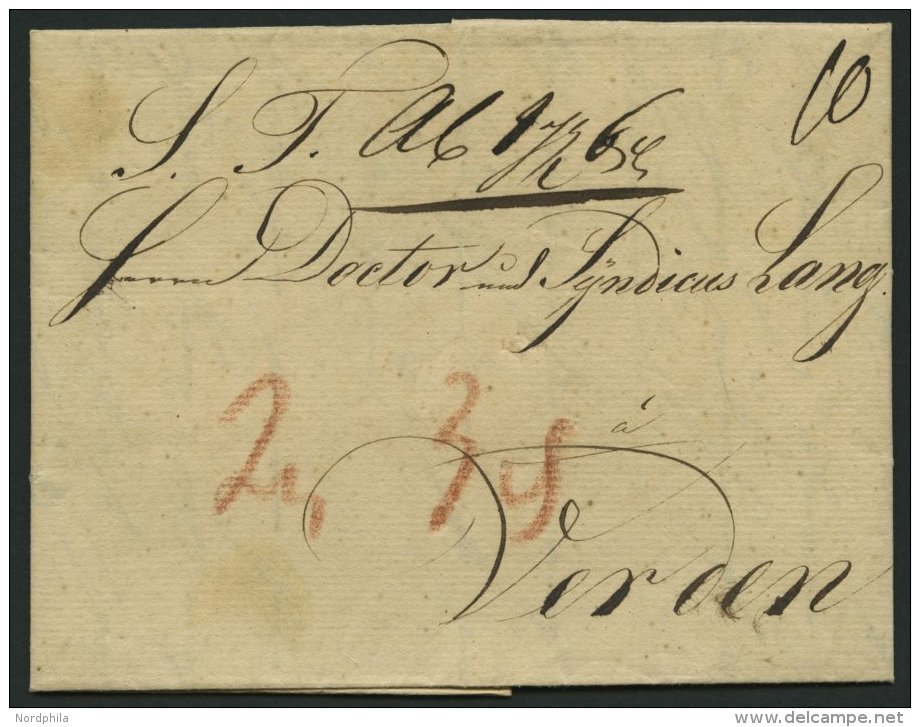 S. T. 10
Herrn Doctor und Syndicus Lang.
2 3
á
Verden
Nordphila
www.delcampe.net